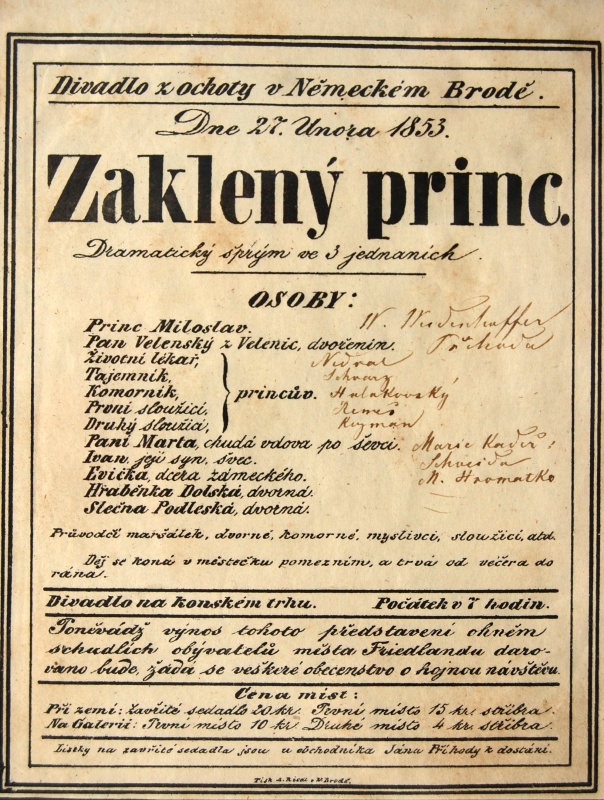 Divadlo z ochoty v Německém Brodě.
Dne 27. Února 1853.
Zaklený princ.
Dramatický šprým ve 3 jednaních.
OSOBY:
Princ Miloslav. W.
Pan Velenský z Velenic, dvořenín. Příhoda
Životní lékař,
Tajemník, Schwarz
Komorník, princův.
První sloužící, Remeš
Druhý sloužící,
Paní Marta, chudá vdova po ševci. Marie
Ivan, její syn, švec.
Evička, dcera zámeckého. M. Hromatko
Hraběnka Dolská, dvorná.
Slečna Podleská, dvorná.
Průvodčí maršálek, dvorné, komorné, myslivci, sloužící, atd.
Děj se koná v městečku pomezním, a trvá od večera do
rána.
Divadlo na konském trhu. Počátek v 7 hodin.
Poněvádž výnos tohoto představení ohněm
schudlich obývatelů místa Friedlandu daro-
vano bude, žáda se veškeré obecenstvo o hojnou návštěvu.
Cena míst:
Při zemi: zavřité sedadlo 20 kr. První místo 15 kr. stříbra.
Na Galerii: První místo 10 kr. Druhé místo 4 kr. stříbra.
Lístky na zavřité sedadla jsou u obchodníka Jána Příhody k dostání.